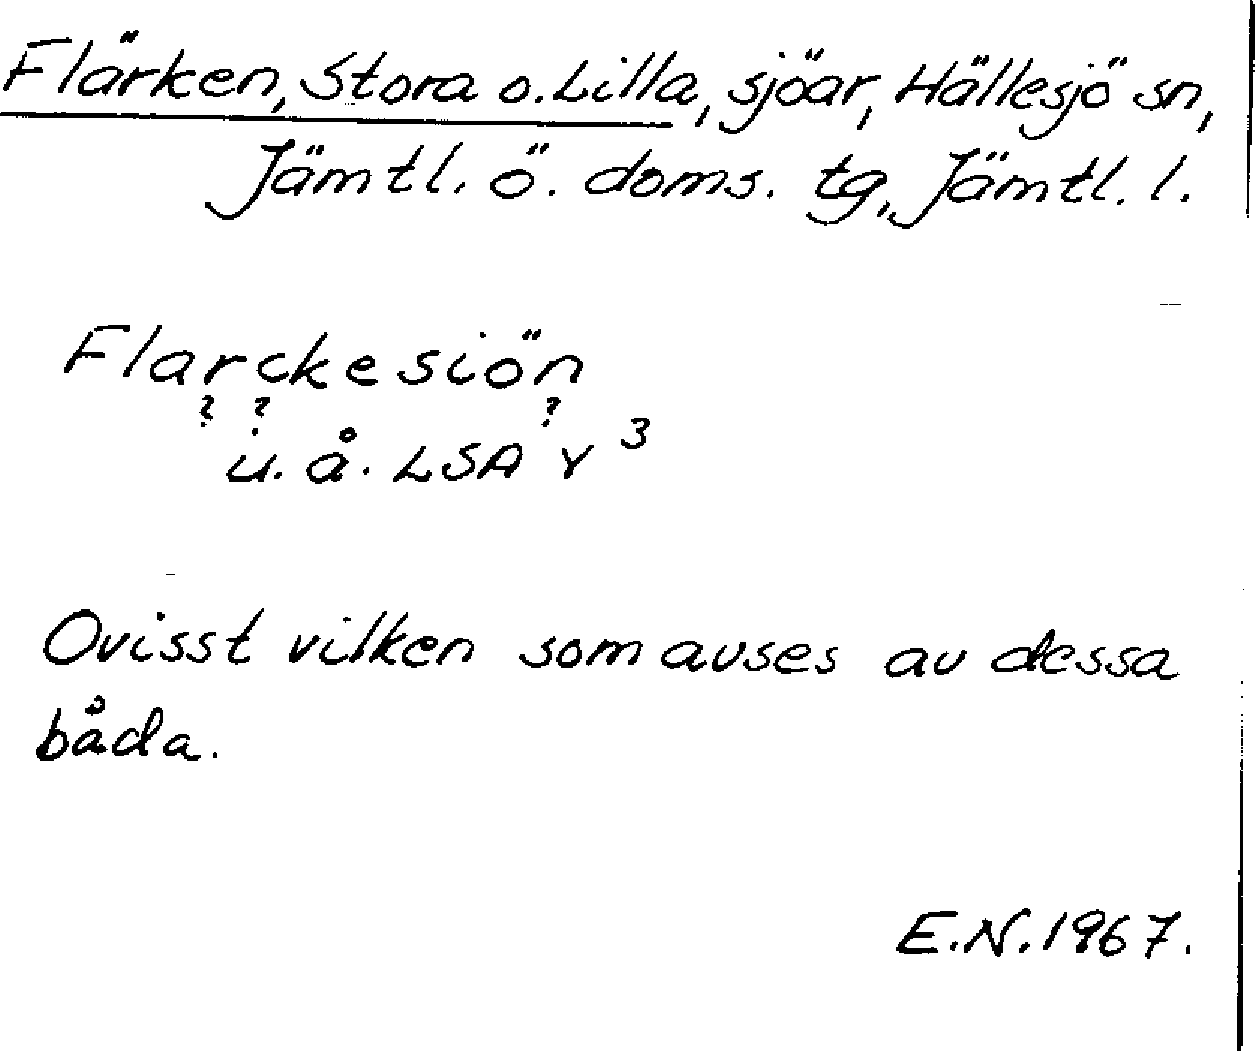 Flärken, Stora o. Lilla, sjöar, Hällesjö sn,
Jämtl. ö. doms. tg, Jämtl. l.
Flarckesiön
? ? ?
u. å. LSA Y 3
Ovisst vilken som avses av dessa
båda.
E.N. 1967.